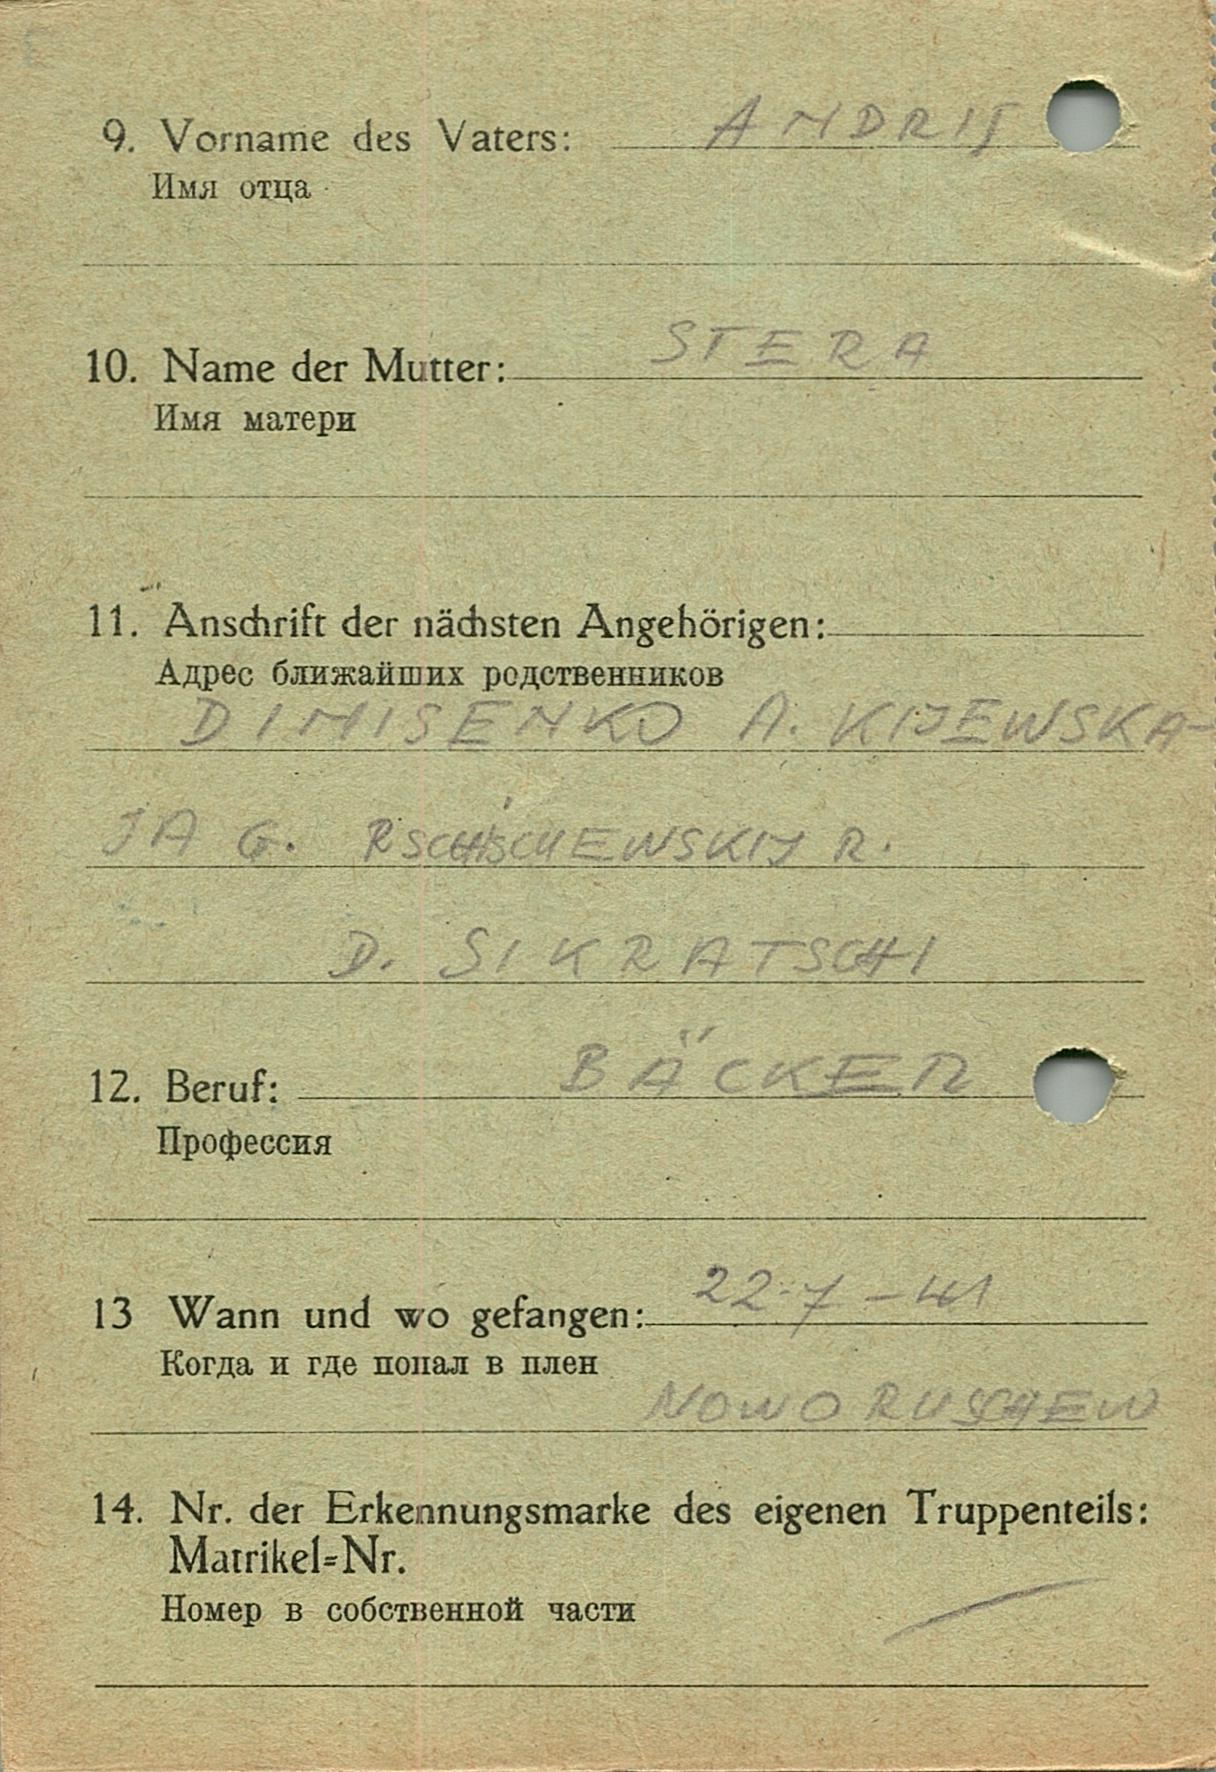 9. Vorname des Vaters: ANDRIJ
Имя отца
10. Name der Mutter: STERA
Имя матери
11. Anschrift der nächsten Angehörigen:
Адрес ближайших родственников
DIMISENKO A. KIJEWSKA-
JA G. RSCHISCHEWSKIJ R.
D. SIKRATSCHI
12. Beruf: BÄCKER
Профессия
13 Wann und wo gefangen: 22-7-41
Когда и где попал в плен
NOWO RUSCHEW
14. Nr. der Erkennungsmarke des eigenen Truppenteils:
Matrikel=Nr.
Номер в собственной части